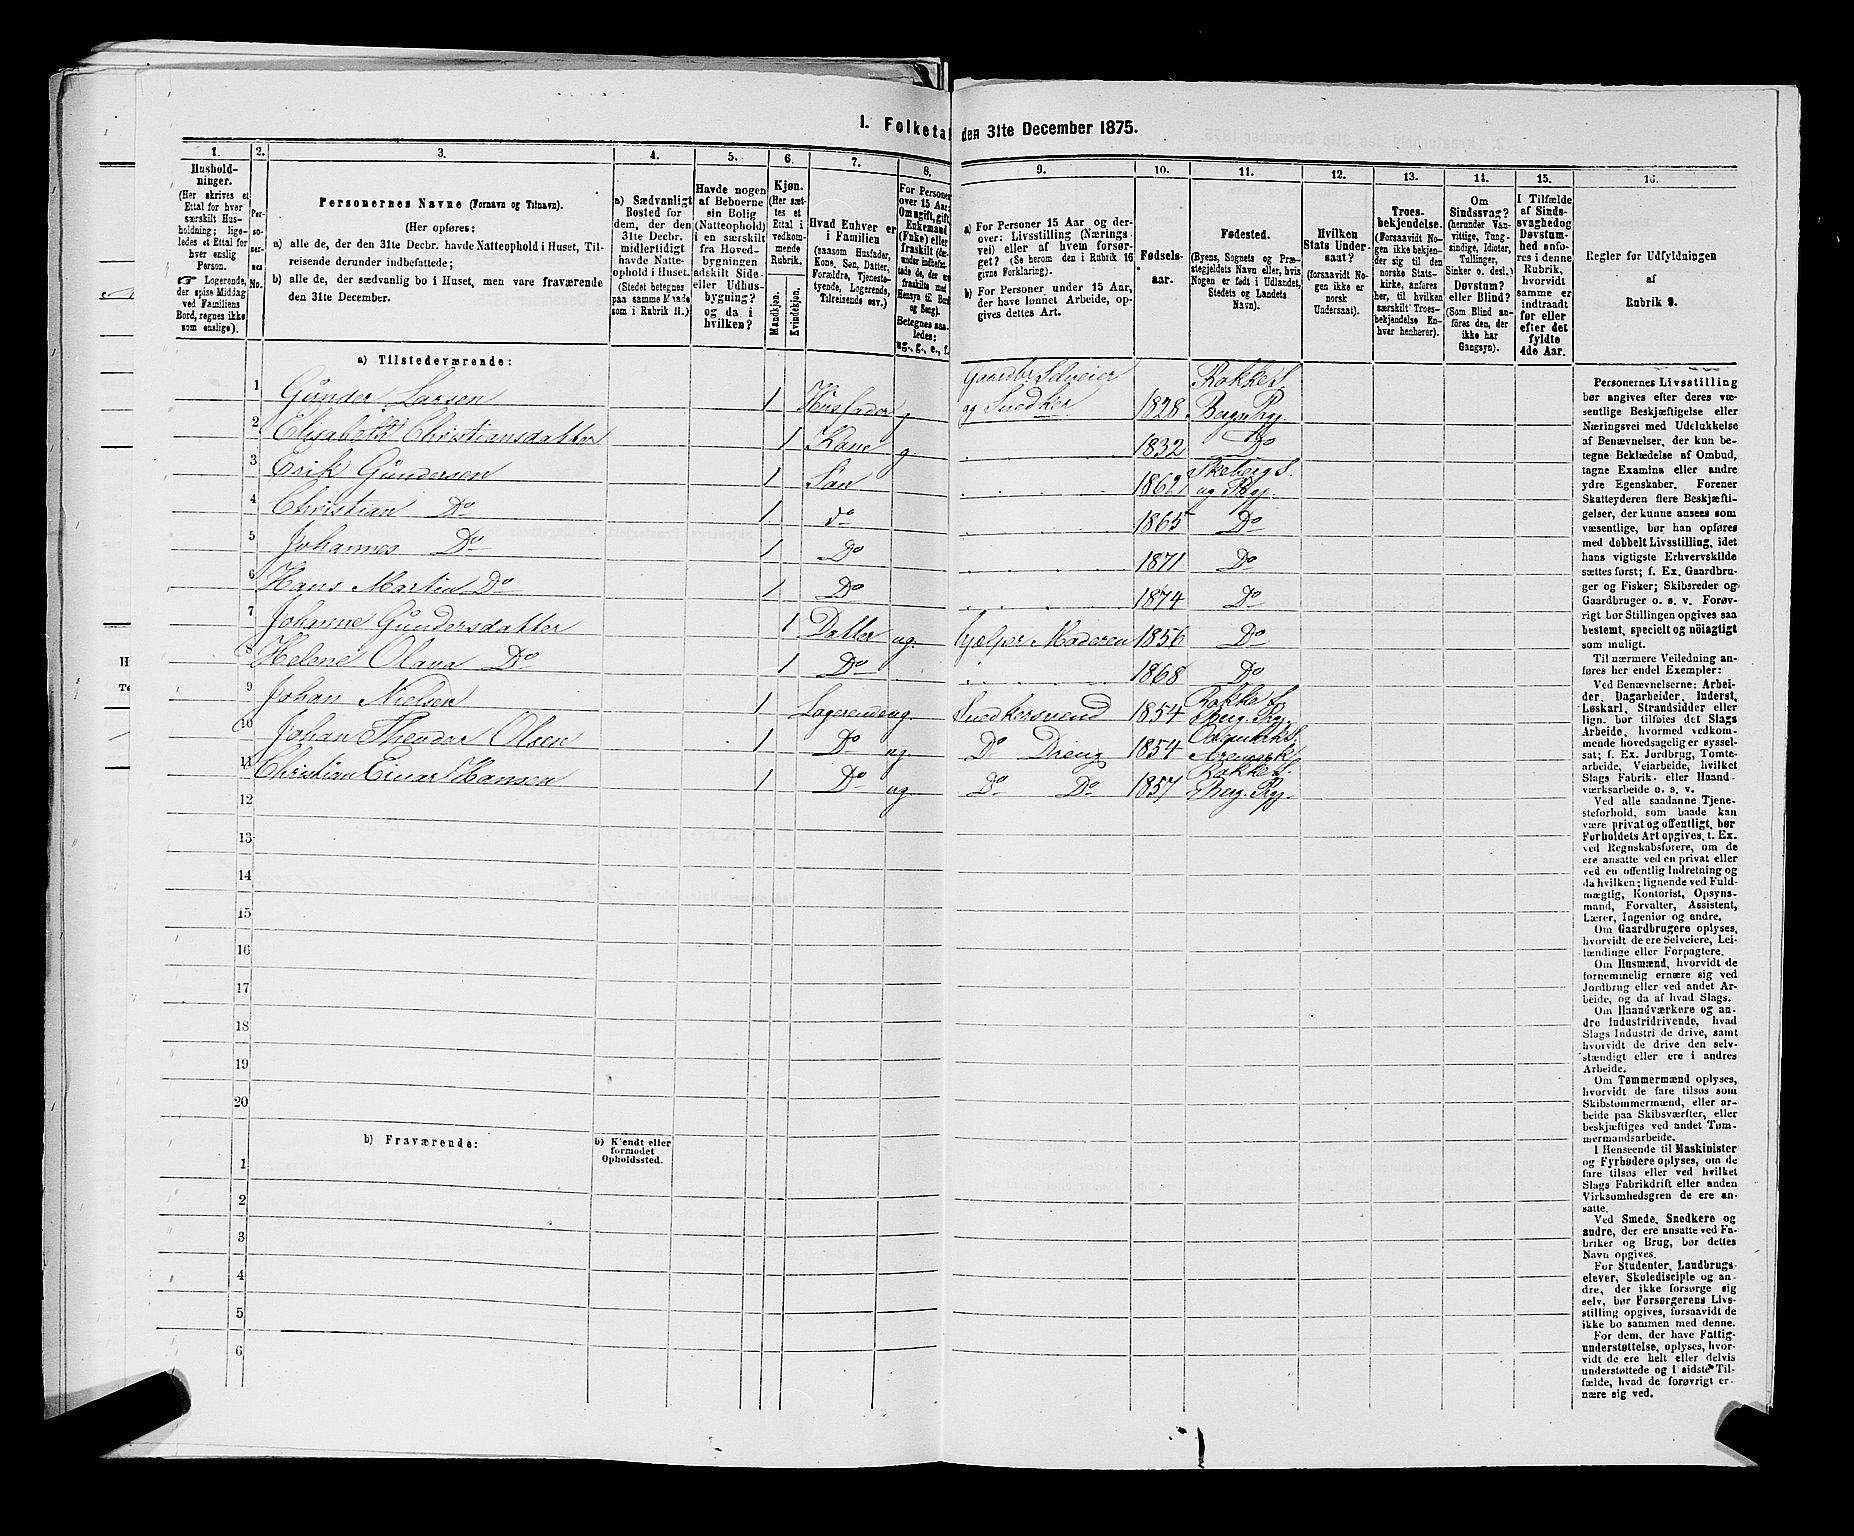 I. Folketal den 31te December 1875.
1. 2. 3. 4. 5. 6. 7. 8. 9. 10. 11. 12. 13. 14. 15. 16.
Hushold-
ninger.
(Her skrives et
Ettal for hver
særskilt Hus-
holdning; lige-
ledes et Ettal for
hver enslig
Person.
☛ Logerende,
der spise Middag
ved Familiens
Bord, regnes ikke
som enslige).
Per-
so-
ner-
nes
No.
Personernes Navne (Fornavn og Tilnavn).
(Her opføres:
a) alle de, der den 31te Decbr. havde Natteophold i Huset, Til-
reisende derunder indbefattede;
b) alle de, der sædvanlig bo i Huset, men vare fraværende
den 31te December.
a) Sædvanligt
Bosted for
dem, der den
31te Decbr.
midlertidigt
havde Natte-
ophold i Huset.
(Stedet betegnes
paa samme Maade
som i Rubrik 11.)
Havde nogen
af Beboerne
sin Bolig
(Natteophold)
i en særskilt
fra Hoved-
bygningen
adskilt Side-
eller Udhus-
bygning?
og da i
hvilken?
Kjøn.
(Her sæt-
tes et
Ettal i
vedkom-
mende
Rubrik.
Mandkjøn.
Kvindekjøn.
Hvad Enhver er
i Familien
(saasom Husfader,
Kone, Søn, Datter,
Forældre, Tjeneste-
tyende, Logerende,
Tilreisende osv.)
For Personer
over 15 Aar:
Om ugift, gift,
Enkemand
(Enke) eller
fraskilt (der-
under indbefat-
tede de, der ere
fraskilte med
Hensyn til Bord
og Seng).
Betegnes saa-
ledes:
ug., g., e., f.
a) For Personer 15 Aar og der-
over: Livsstilling (Nærings-
vei) eller af hvem forsør-
get? (Se herom den i Rubrik 16
givne Forklaring).
b) For Personer under 15 Aar,
der have lønnet Arbeide, op-
gives dettes Art.
Fødsels-
aar.
Fødested.
(Byens, Sognets og Præ-
stegjeldets Navn eller, hvis
Nogen er født i Udlandet,
Stedets og Landets
Navn).
Hvilken
Stats Under-
saat?
(forsaavidt No-
gen ikke er
norsk
Undersaat).
Troes-
bekjendelse.
(Forsaavidt No-
gen ikke bekjen-
der sig til den
norske Stats-
kirke, anføres
her, til hvilken
særskilt Troes-
bekjendelse En-
hver henhører).
Om
Sindssvag?
(herunder Van-
vittige, Tung-
sindige, Idioter,
Tullinger,
Sinker o. desl.)
Døvstum?
eller Blind?
(Som Blind an-
føres den, der
ikke har
Gangsyn).
I Tilfælde
af Sinds-
svaghed og
Døvstum-
hed anfø-
res i denne
Rubrik,
hvorvidt
samme er
indtraadt
før eller
efter det
fyldte
4de Aar.
Regler for Udfyldningen
af
Rubrik 9.
a) Tilstedeværende:
1 Gunder Larsen 1 Husfader g Gaardbr. Selveier og Snedker 1828 Rokke S. Bergs Pgj.
2 Elisabeth Christiansdatter 1 Kone g. 1832 Do
3 Erik Gundersen 1 Søn 1862 Skeberg S. og Pgj.
4 Christian Do 1 do 1865 Do
5 Johannes Do 1 Do 1871 Do
6 Hans Martin Do 1 Do 1874 Do
7 Johanne Gundersdatter 1 Datter ug. hjelper Moderen 1856 Do
8 Helene Olava Do 1 Do 1868 Do
9 Johan Nielsen 1 Logerende ug. Snedkersvend 1854 Rokke S. Berg. Pgj.
10 Johan Theodor Olsen 1 Do ug Do Dreng 1854
11 Christian Einar Hansen 1 Do ug Do Do 1857 Rokke S. Berg. Pgj.
12
13
14
15
16
17
18
19
20
b) Fraværende:
b) Kjendt eller
formodet
Opholdssted.
1
2
3
4
5
6
Personernes Livsstilling
bør angives efter deres væ-
sentlige Beskjæftigelse eller
Næringsvei med Udelukkelse
af Benævnelser, der kun be-
tegne Beklædelse af Ombud,
tagne Examina eller andre
ydre Egenskaber. Forener
Skatteyderen flere Beskjæfti-
gelser, der kunne ansees som
væsentlige, bør han opføres
med dobbelt Livsstilling, idet
hans vigtigste Erhvervskilde
sættes først; f. Ex. Gaardbru-
ger og Fisker; Skibsreder og
Gaardbruger o. s. v. Forøv-
rigt bør Stillingen opgives saa
bestemt, specielt og nöiagtigt
som muligt.
Til nærmere Veiledning an-
føres her endel Exempler:
Ved Benævnelserne: Arbei-
der, Dagarbeider, Inderst,
Løskarl, Strandsidder eller
lign. bør tilføies det Slags
Arbeide, hvormed vedkom-
mende hovedsagelig er syssel-
sat; f. Ex. Jordbrug, Tømte-
arbeide, Veiarbeide, hvilket
Slags Fabrik- eller Haand-
værksarbeide o. s. v.
Ved alle saadanne Tjene-
steforhold, som baade kan
være privat og offentligt, bør
Forholdets Art opgives, t. Ex.
ved Regnskabsførere, om de
ere ansatte ved en privat eller
ved en offentlig Indretning og
da hvilken; lignende ved Fuld-
mægtig, Kontorist, Opsyns-
mand, Forvalter, Assistent,
Lærer, Ingeniør og andre.
Om Gaardbrugere oplyses,
hvorvidt de ere Selveiere, Lei-
lændinge eller Forpagtere.
Om Husmænd, hvorvidt de
fornemmelig ernære sig ved
Jordbrug eller ved andet Ar-
beide, og da af hvad Slags.
Om Haandværkere og an-
dre Industridrivende, hvad
Slags Industri de drive, samt
hvorvidt de drive den selv-
stændigt eller ere i andres
Arbeide.
Om Tømmermænd oplyses,
hvorvidt de fare tilsøs som
Skibstømmermænd, eller ar-
beide paa Skibsværfter, eller
beskjæftiges ved andet Tøm-
mermandsarbeide.
I Henseende til Maskinister
og Fyrbødere oplyses, om de
fare tilsøs eller ved hvilket
Slags Fabrikdrift eller anden
Virksomhedsgren de ere an-
satte.
Ved Smede, Snedkere og
andre, der ere ansatte ved Fa-
briker og Brug, bør dettes
Navn opgives.
For Studenter, Landbrugs-
elever, Skoledisciple og an-
dre, der ikke forsørge sig
selv, bør Forsørgerens Livs-
stilling opgives, forsaavidt de
ikke bo sammen med denne.
For dem, der have Fattig-
understøttelse, oplyses, hvor-
vidt de ere helt eller delvis
understøttede og i sidste Til-
fælde, hvad de forøvrigt er-
nære sig ved.